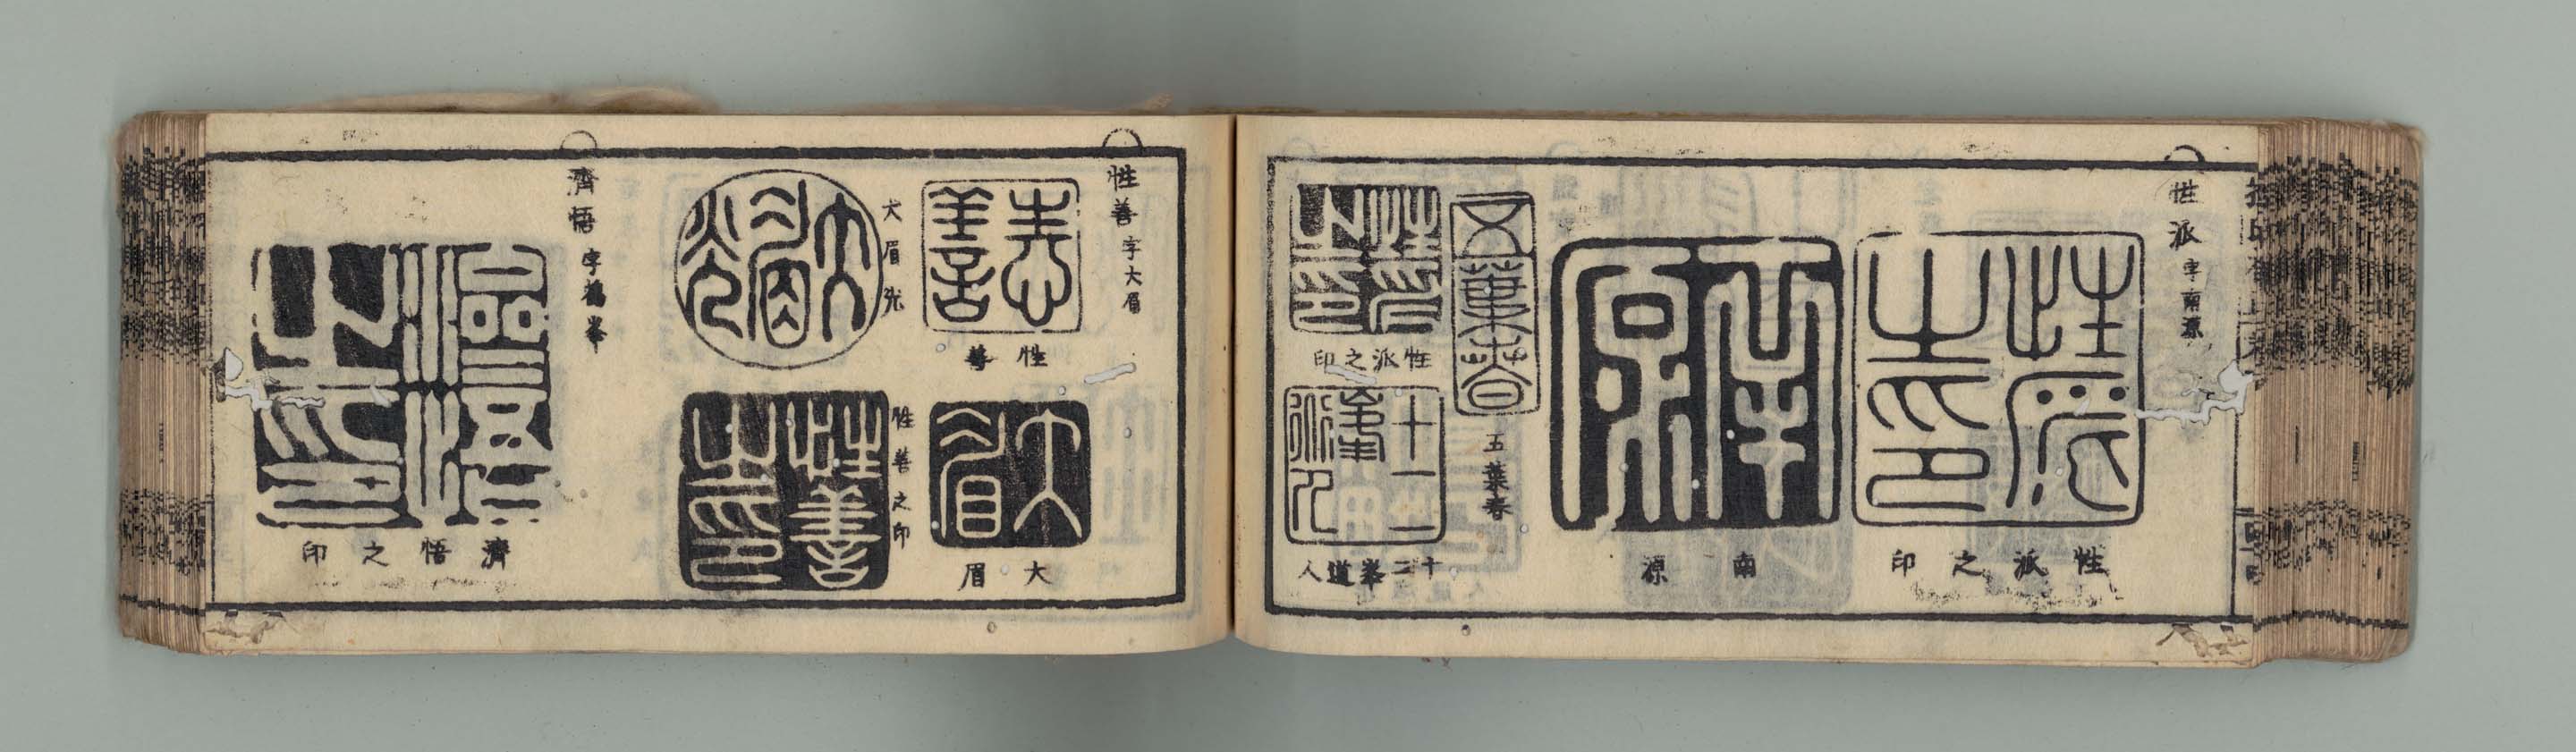 性派 字南源
性派之印
南源
五葉春
性派之印
十二峯道人
性善 字大眉
性善
大眉
大眉光
性善之印
濟悟 字鶴峯
濟悟之印